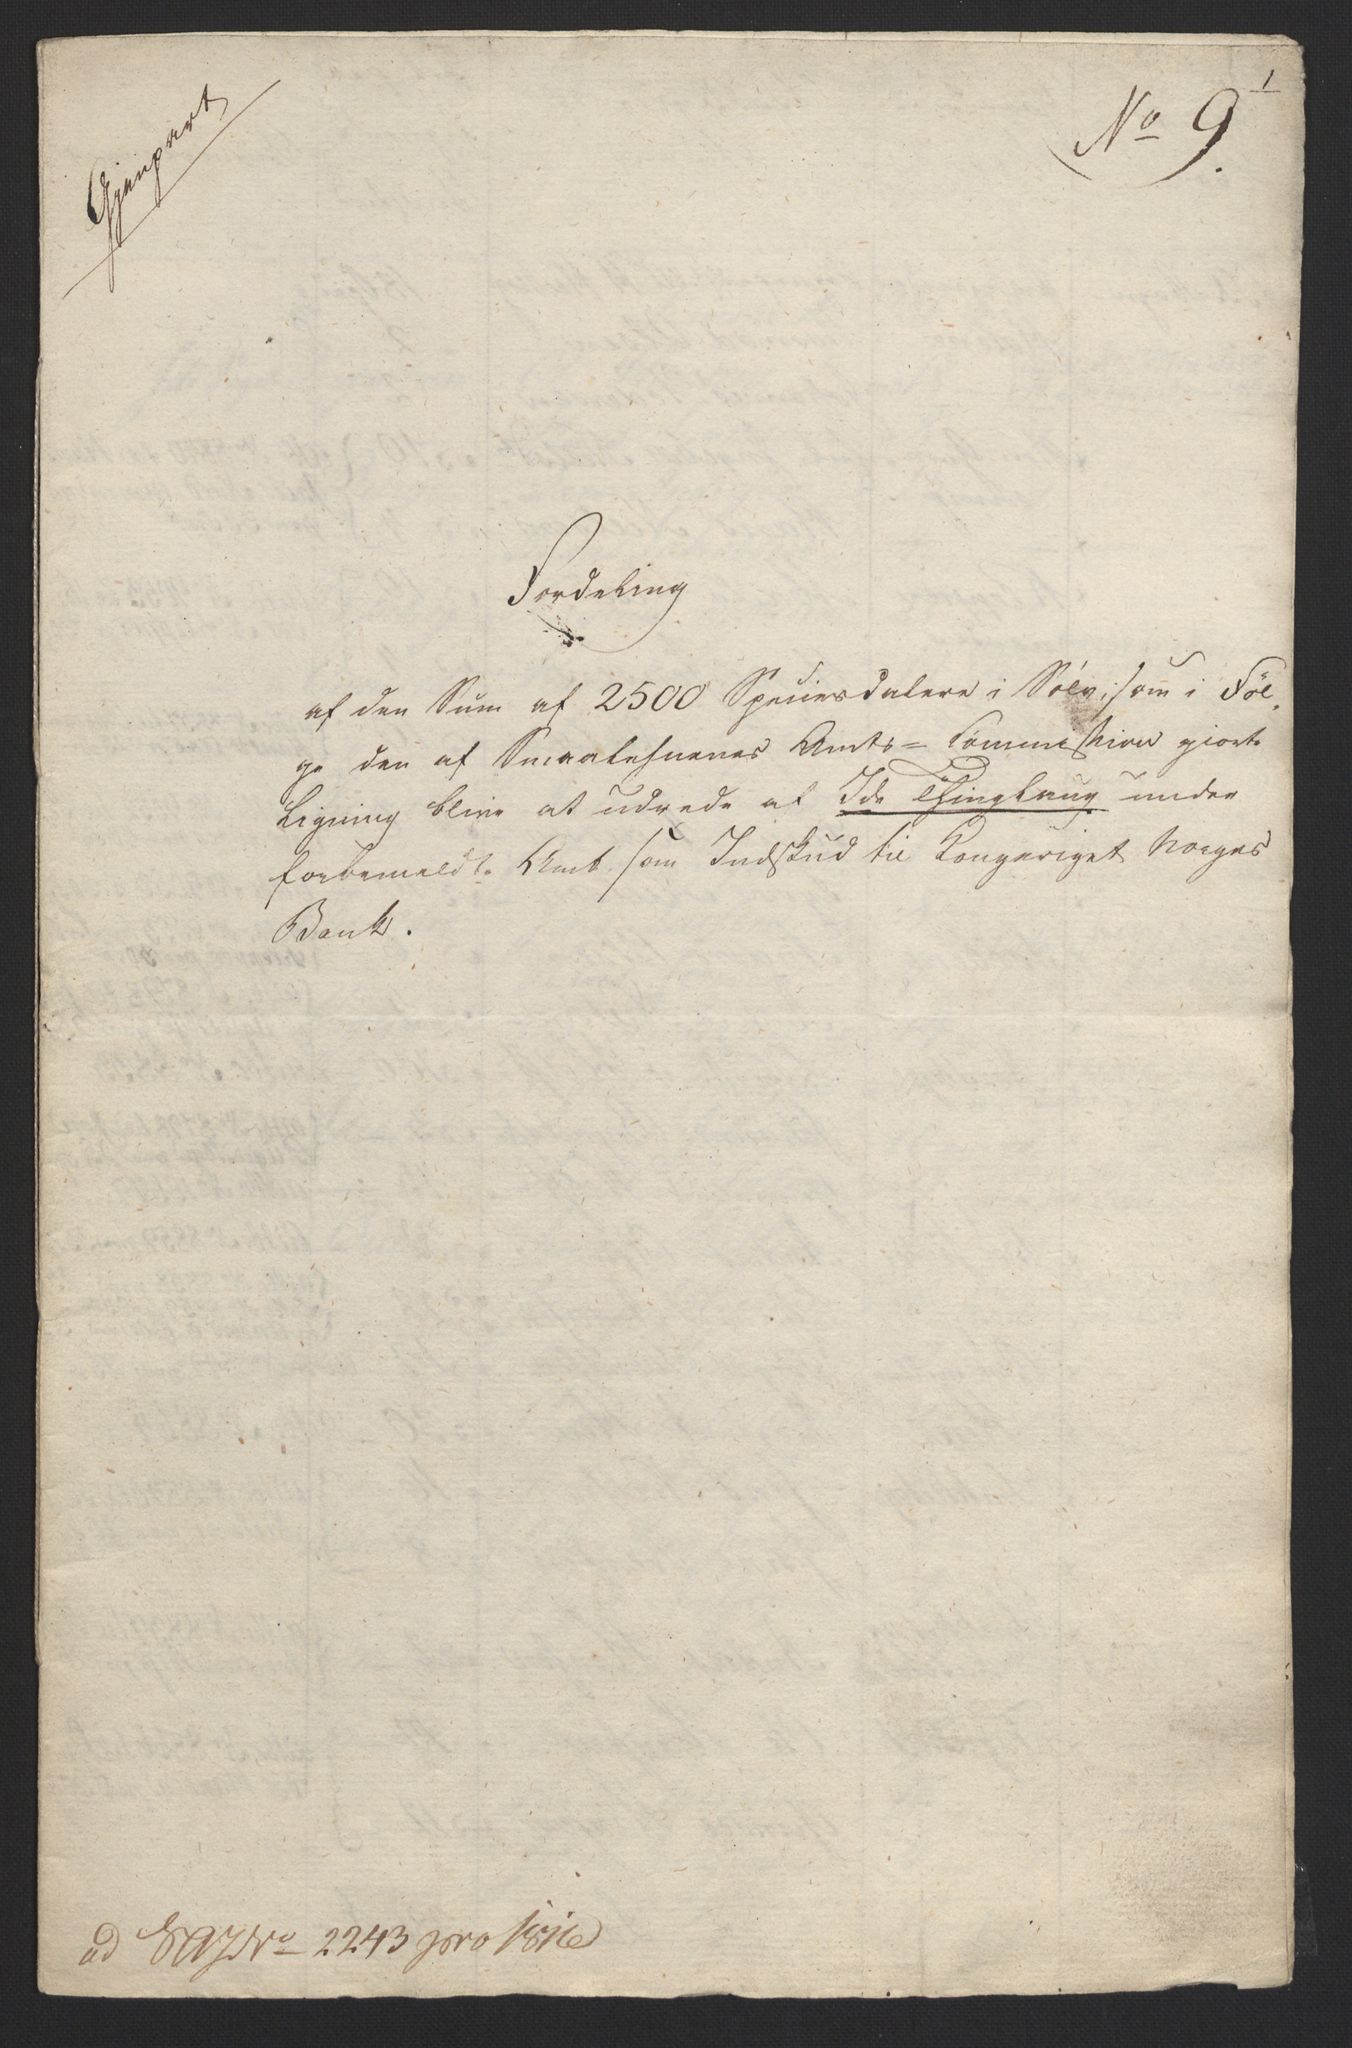 Gjenpart
1
No 9.
Fordeling
af den Sum af 2500 Speciesdalere i Sølv, som i Føl-
ge den af Smaalehnenes Amts-Commission giorte
Ligning blive at udrede af Ide Thinglaug under
forbemeldte Amt som Indskud til Kongeriget Norges
Bank.
ad No 2243 pro 1816